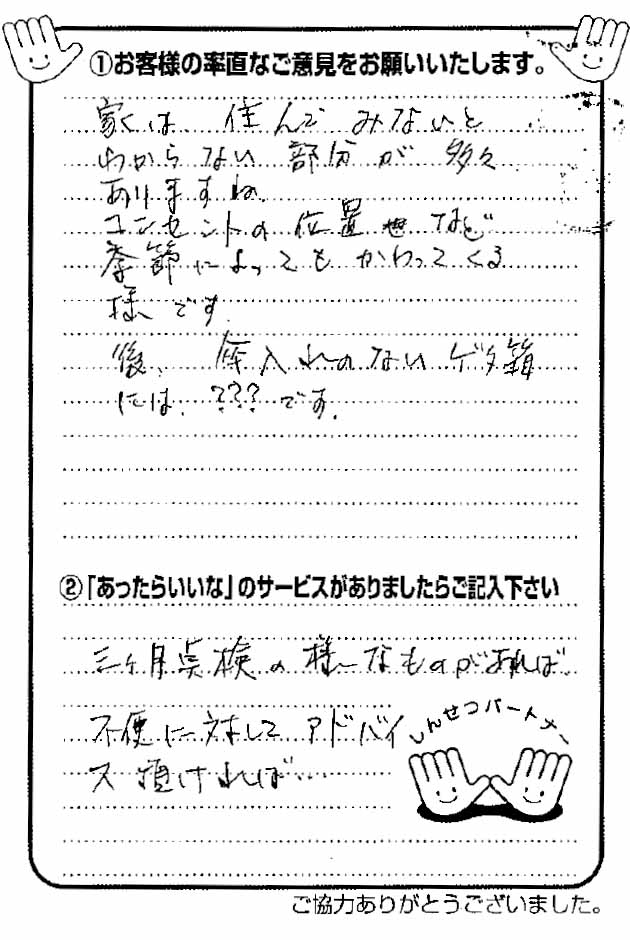 ①お客様の率直なご意見をお願いいたします。
家は 住んでみないと
わからない部分が多々
ありますね。
コンセントの位置など
季節によってもかわってくる
様です。
後、傘入れのないゲタ箱
には、???です。
②「あったらいいな」のサービスがありましたらご記入下さい
三ヶ月点検の様なものがあれば…
不便に対して アドバイ
ス頂ければ…
しんせつパートナー
ご協力ありがとうございました。